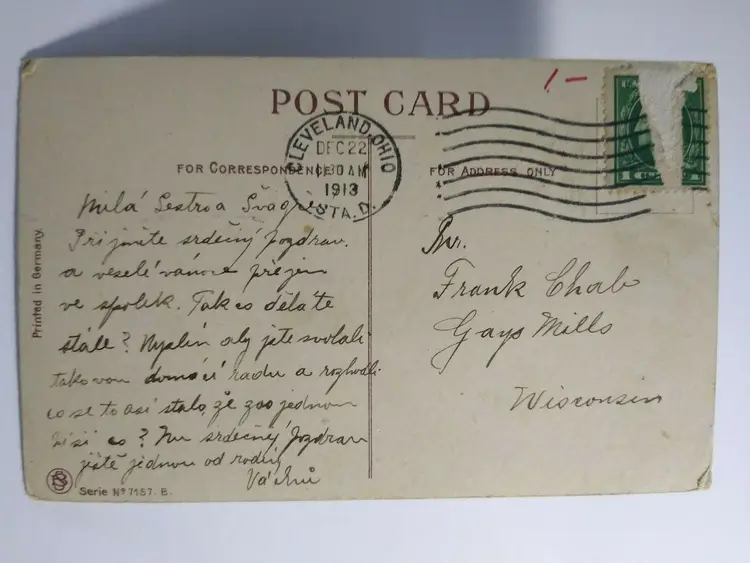 1-
POST CARD
CLEVELAND, OHIO
DEC 22
30 AM
1913
STA. D.
FOR CORRESPONDENCE
FOR ADDRESS ONLY
Milá Sestro a
Přijměte srdečný pozdrav
a veselé vánoce přejem
ve spolek. Tak co děláte
stále? Myslím aby jste svolali
takovou domácí radu a rozhodli
co se to asi stalo, že zas jednou
co? Nu srdečný pozdrav
ještě jednou od rodiny
Mr.
Frank Chab
Gays Mills
Wisconsin
Printed in Germany.
Serie No 7157. B.
1